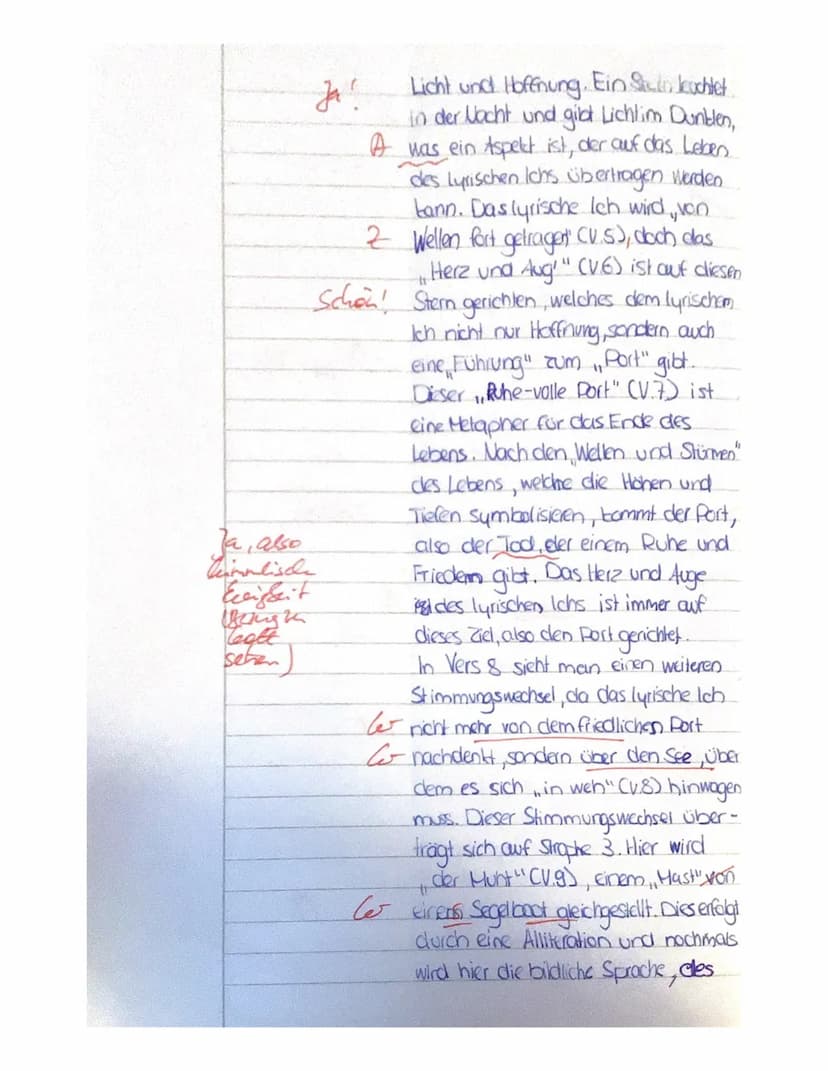 Ja!
Licht und Hoffnung. Ein Stern leuchtet
in der Nacht und gibt Licht im Dunklen,
A was ein Aspekt ist, der auf das Leben
des lyrischen Ichs übertragen werden
kann. Das lyrische Ich wird „von
Z Wellen fort getragen" (V.5), doch das
„Herz und Aug'" (V.6) ist auf diesen
Schön! Stern gerichten, welches dem lyrischem
Ich nicht nur Hoffnung, sondern auch
eine „Führung" zum „Port" gibt.
Dieser „Ruhe-volle Port" (V.7) ist
eine Metapher für das Ende des
Lebens. Nach den „Wellen und Stürmen"
des Lebens, welche die Höhen und
Tiefen symbolisieren, kommt der Port,
also der Tod, der einem Ruhe und
Friedem gibt. Das Herz und Auge
des lyrischen Ichs ist immer auf
dieses Ziel, also den Port gerichtet.
Ja, also
himmlische
Ewigkeit
sehen)
In Vers 8 sieht man einen weiteren
Stimmungswechsel, da das lyrische Ich
nicht mehr von dem friedlichen Port
nachdenkt, sondern über den See, über
dem es sich „in weh" (V.8) hinwagen
muss. Dieser Stimmungswechsel über-
trägt sich auf Strophe 3. Hier wird
„der Muht" (V.9), einem „Mast" von
einem Segelboot gleichgestellt. Dies erfolgt
durch eine Alliteration und nochmals
wird hier die bildliche Sprache, des